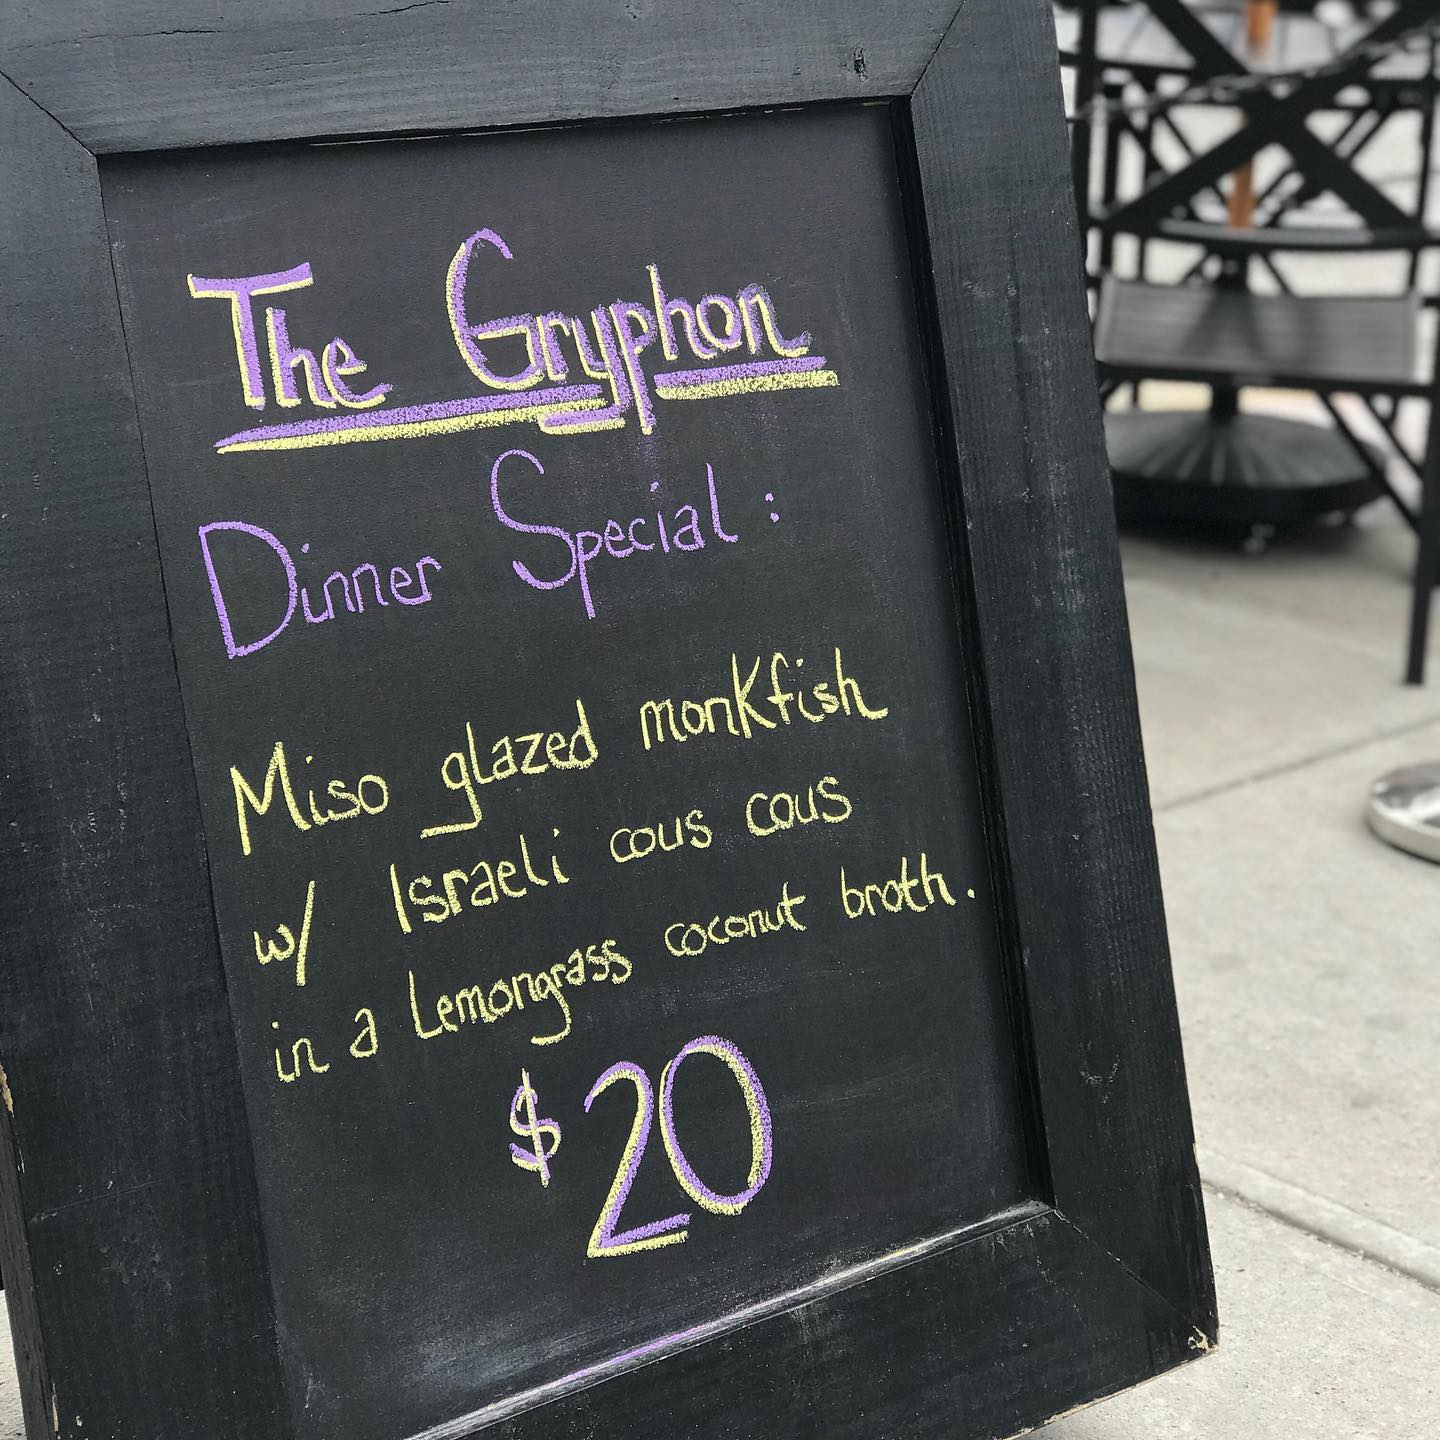 The Gryphon
Dinner Special:
Miso glazed monkfish
w/ Israeli cous cous
in a Lemongrass coconut broth.
$20